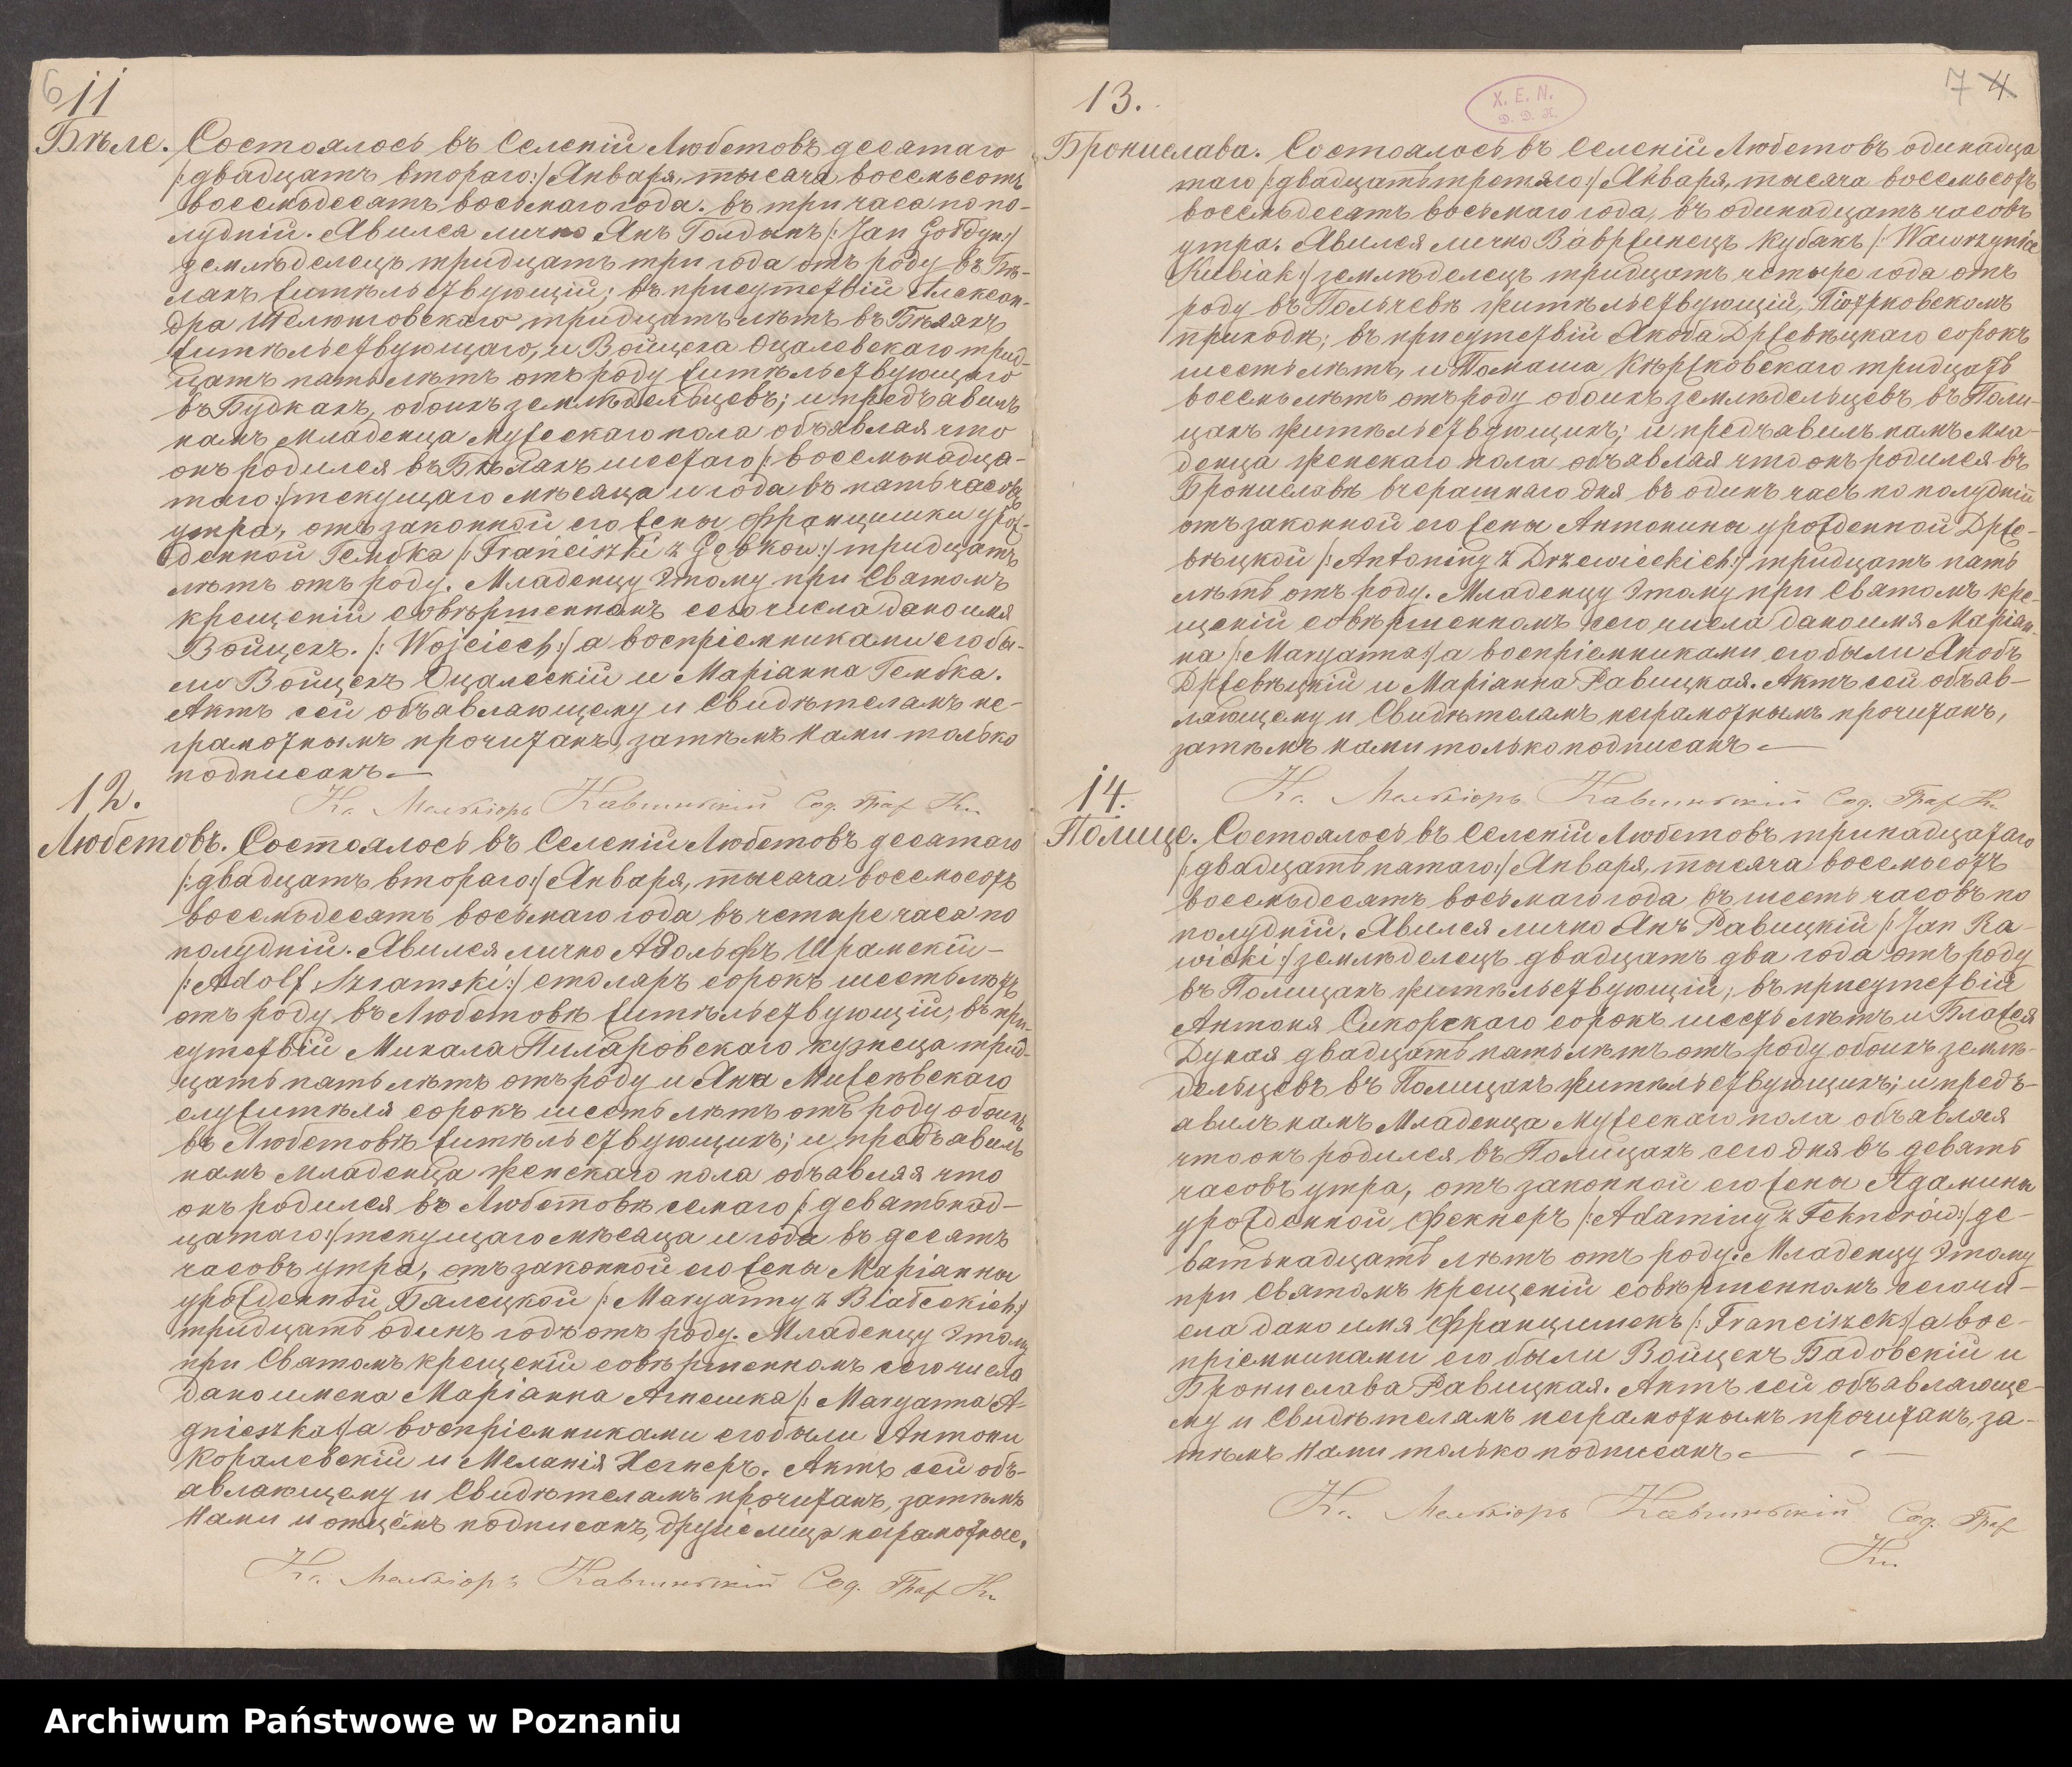 6 11
Бѣле. Состоялось въ Селеніи Любстовъ десятаго
/:двадцать втораго:/ Января, тысяча восемьсотъ
восемьдесятъ восьмаго года. въ три часа попо-
лудній. Явился лично Янъ Голдынъ /:Jan Gołdyn:/
земледѣлецъ тридцать три года отъ роду въ Бѣ-
лахъ жительствующій; въ присутствій Алексан-
дра тридцать лѣтъ въ Бѣлахъ
жительствующаго, и Войцеха Оцалевскаго трид-
цать пять лѣтъ отъ роду жительствующаго
въ Будкахъ, обоихъ земледѣльцевъ; и предъявилъ
намъ Младенца Мужескаго пола объявляя что
онъ родился въ Бѣлахъ шестаго /:восемьнадца-
таго:/ текущаго мѣсяца и года въ пять часовъ
утра, отъ законной его жены Францишки урож-
денной Гембка /:Franciszki z Gębków:/ тридцать
лѣтъ отъ роду. Младенцу Этому при Святомъ
крещеній совѣршенномъ сего числа дано имя
Войцехъ. /:Wojciech:/ а воспріемниками его бы-
ли Войцехъ Оцалескій и Маріанна Гембка.
Актъ сей объявляющему и Свидѣтелямъ не-
грамотнымъ прочитанъ, затѣмъ Нами только
подписанъ —
Кс. Мелхіоръ Кавчиньскій Сод. Граж Кн.
12.
Любстовъ. Состоялось въ Селеніи Любстовъ десятаго
/:двадцать втораго:/ Января, тысяча восемьсотъ
восемьдесятъ восьмаго года въ четыре часа по
полудній. Явился лично Адольфъ Шрамскій -
/:Adolf Szramski:/ столяръ сорокъ шесть лѣтъ
отъ роду въ Любстовѣ жительствующій; въ при-
сутствій Михала Пиларовскаго кузнеца трид-
цать пять лѣтъ отъ роду и Яна
служителя сорокъ шесть лѣтъ отъ роду обоихъ
въ Любстовѣ жительствующихъ; и предъявилъ
намъ Младенца женскаго пола объявляя что
онъ родился въ Любстовѣ семаго /:девятьнад-
цатаго:/ текущаго мѣсяца и года въ десять
часовъ утра, отъ законной его жены Маріанны
урожденной Бялецкой /:Maryanny z Białeckich:/
тридцать одинъ годъ отъ роду. Младенцу Этому
при Святомъ крещеній совѣршенномъ сего числа
дано имена Маріанна Агнешка /:Maryanna A-
gnieszka:/ а воспріемниками его были Антони
Коралевскій и Меланія Хегнеръ. Актъ сей объ-
являющему и Свидѣтелямъ прочитанъ, затѣмъ
Нами и отцёмъ подписанъ, другіе лица неграмотные.
Кс. Мелхіоръ Кавчиньскій Сод. Граж Кн.
7 4
X. E. N.
D. D. K.
13.
Бронислава. Состоялось въ Селеніи Любстовъ одинадца
таго /:двадцать третяго:/ Января, тысяча восемьсотъ
восемьдесятъ восьмаго года, въ одинадцать часовъ
утра. Явился лично Вавржинецъ Кубякъ /:Wawrzyniec
Kubiak:/ земледѣлецъ тридцать четыре года отъ
роду въ Польчевѣ жительствующій, Піотрковскомъ
приходѣ; въ присутствій Якоба Држевѣцкаго сорокъ
шесть лѣтъ, и Томаша тридцать
восемь лѣтъ отъ роду обоихъ земледѣльцевъ въ Поли-
цахъ жительствующихъ; и предъявилъ намъ Мла-
денца женскаго пола объявляя что онъ родился въ
Брониславѣ вчерашняго дня въ одинъ часъ по полудній
отъ законной его жены Антонины урожденной Држе-
вѣцкой /:Antoniny z Drzewieckich:/ тридцать пять
лѣтъ отъ роду. Младенцу Этому при Святомъ кре-
щеній совѣршенномъ сего числа дано имя Маріан-
на /:Maryanna:/ а воспріемниками его были Якобъ
Држевѣцкій и Маріанна Равицкая. Актъ сей объяв-
ляющему и Свидѣтелямъ неграмотнымъ прочитанъ,
затѣмъ нами только подписанъ —
Кс. Мелхіоръ Кавчиньскій Сод. Граж Кн.
14.
Полице. Состоялось въ Селеніи Любстовъ тринадцатаго
/:двадцать пятаго:/ Января, тысяча восемьсотъ
восемьдесятъ восьмаго года, въ шесть часовъ по
полудній, Явился лично Янъ Равицкій /:Jan Ra-
wicki:/ земледѣлецъ двадцать два года отъ роду
въ Полицахъ жительствующій; въ присутствій
Антоня Сикорскаго сорокъ шесть лѣтъ и Блажея
Дуная двадцать пять лѣтъ отъ роду обоихъ землѣ-
дельцевъ въ Полицахъ жительствующихъ; и предъ-
явилъ намъ Младенца Мужескаго пола объявляя
что онъ родился въ Полицахъ сего дня въ девять
часовъ утра, отъ законной его жены Адамины
урожденной Фекнеръ /:Adaminy z Feknerów:/ де-
вятьнадцать лѣтъ отъ роду. Младенцу Этому
при Святомъ крещеній совѣршенномъ сего чи-
сла дано имя Францишекъ /:Franciszek:/ а вос-
пріемниками его были Войцехъ Бадовскій и
Бронислава Равицкая. Актъ сей объявляюще-
му и Свидѣтелямъ неграмотнымъ прочитанъ, за-
тѣмъ Нами только подписанъ —
Кс. Мелхіоръ Кавчиньскій Сод. Граж
Кн.
Archiwum Państwowe w Poznaniu